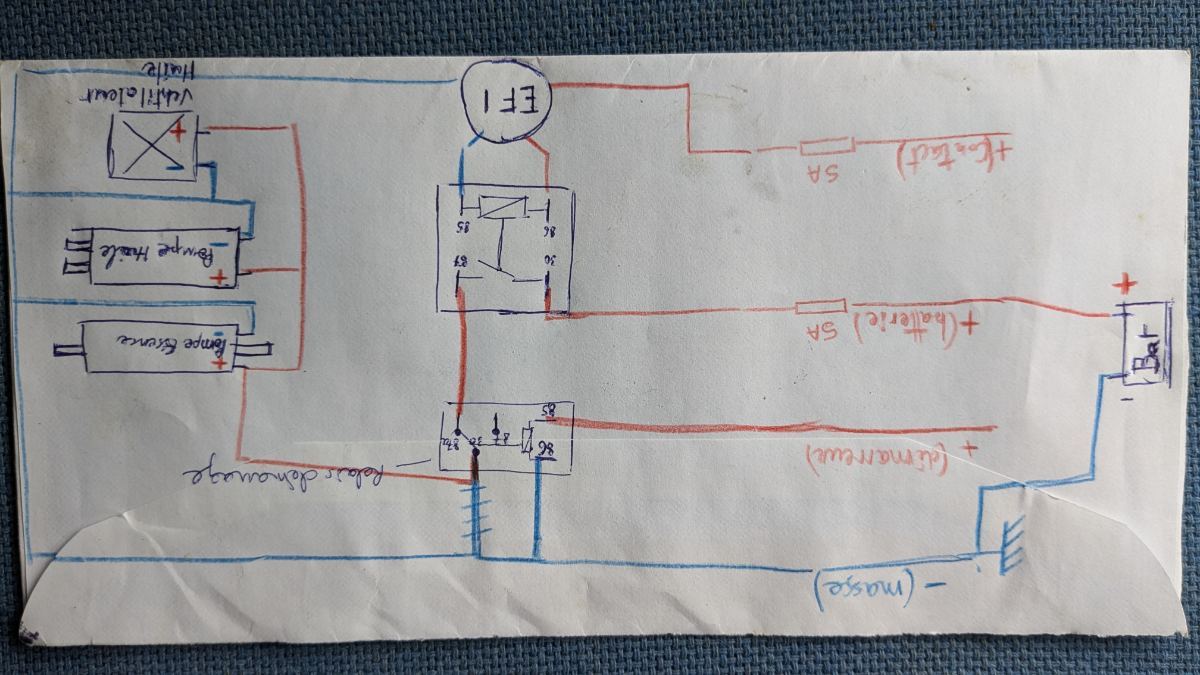 - (masse)
+ (démarreur)
86
87
30
87a
85
Relais démarrage
-
Bat
+
+ (batterie)
5A
30
87
86
85
+
Pompe Essence
-
+
Pompe Huile
-
+ (contact)
5A
EFI
-
+
Ventilateur
Huile